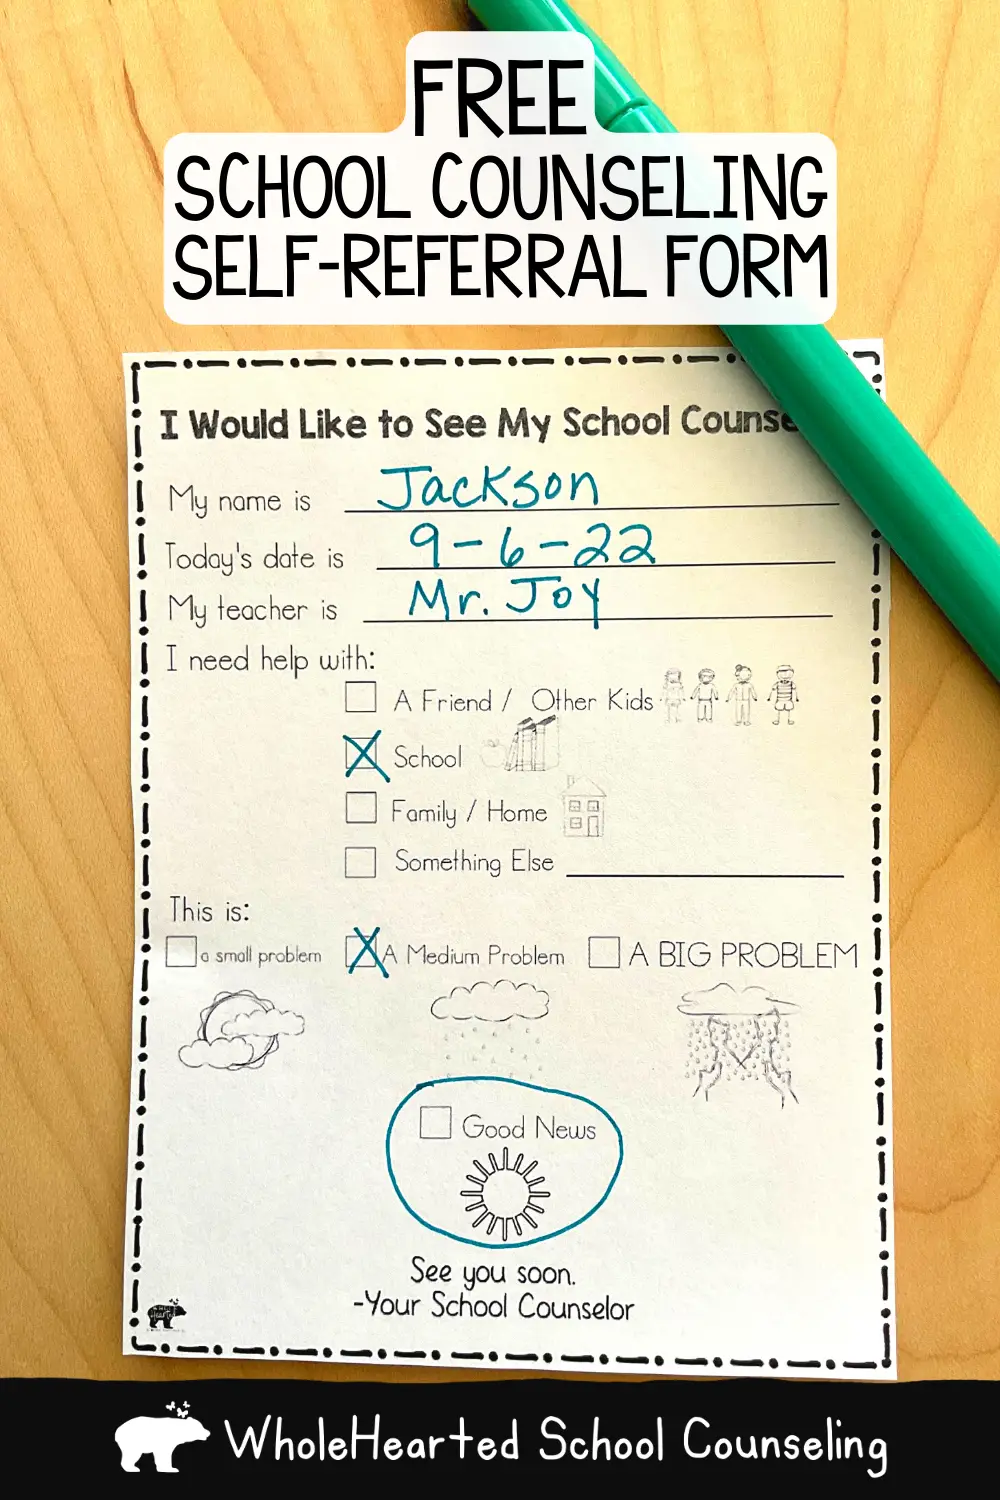 FREE
SCHOOL COUNSELING
SELF-REFERRAL FORM
I Would Like to See My School Counse
My name is Jackson
Today's date is 9-6-22
My teacher is Mr. Joy
I need help with:
A Friend / Other Kids
X School
Family / Home
Something Else
This is:
a small problem X A Medium Problem A BIG PROBLEM
Good News
See you soon.
-Your School Counselor
WholeHearted School Counseling